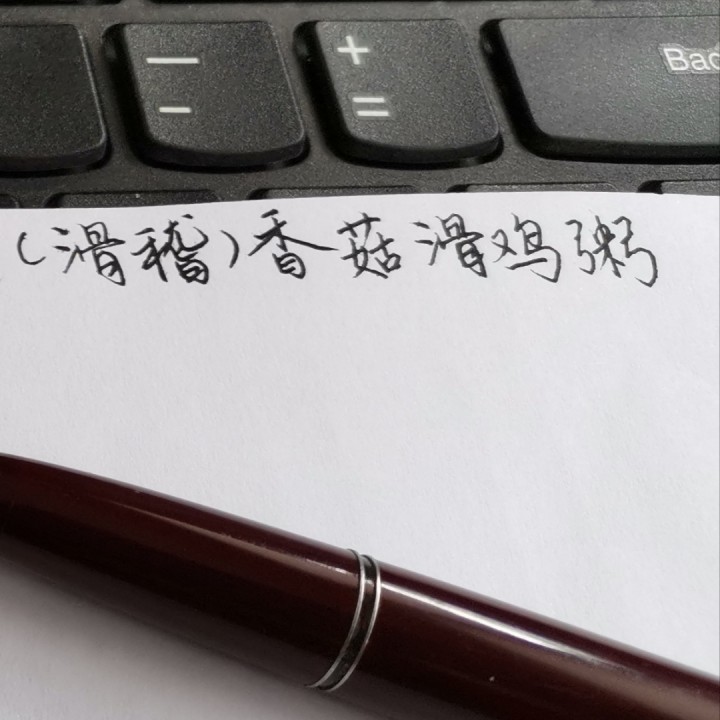 — +
- = Bac
(滑稽)香菇滑鸡粥